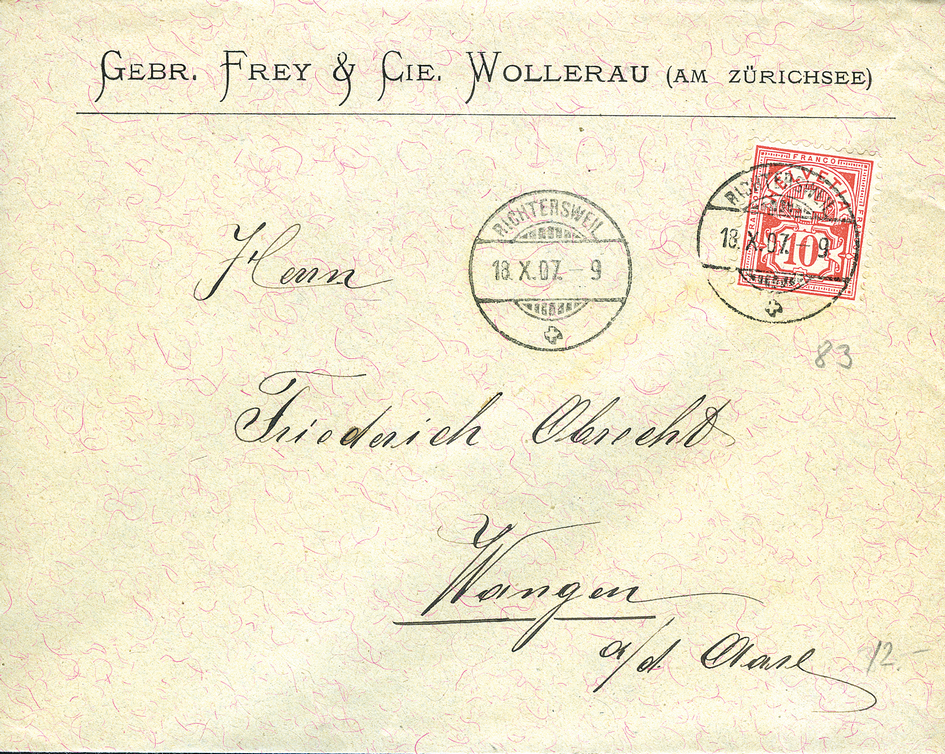 GEBR. FREY & CIE. WOLLERAU (AM ZÜRICHSEE)
FRANCO
HELVETIA
10
RICHTERSWEIL
18.X.07.–9
RICHTERSWEIL
18.X.07.–9
83
Herrn
Friederich Obrecht
Wangen
a/d Aare
12.–